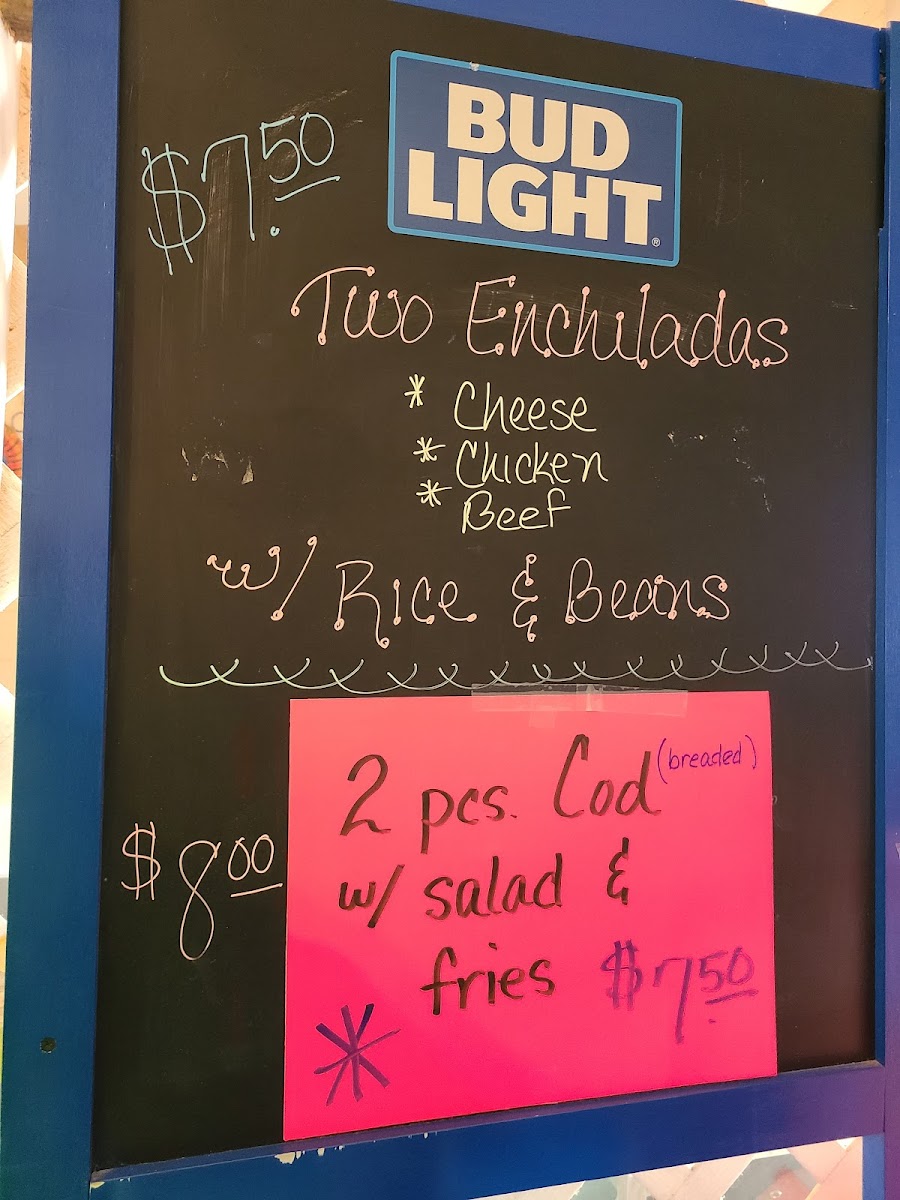 $7.50
BUD
LIGHT®
Two Enchiladas
* Cheese
* Chicken
* Beef
w/ Rice & Beans
2 pcs. Cod (breaded)
$8.00
w/ salad &
fries $7.50
*